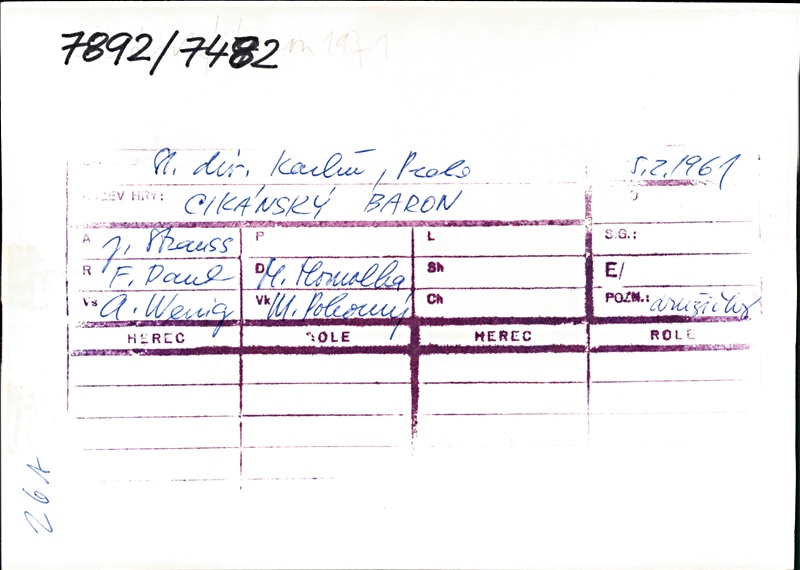 7892/7482
St. div. Karlín, Praha 5.2.1961
NÁZEV HRY: CIKÁNSKÝ BARON
A J. Strauss P L S.G.:
R F. Daul D M. Homolka Sh E/
Vs A. Wenig Vk M. Pokorný Ch POZN.:
HEREC ROLE HEREC ROLE
26A